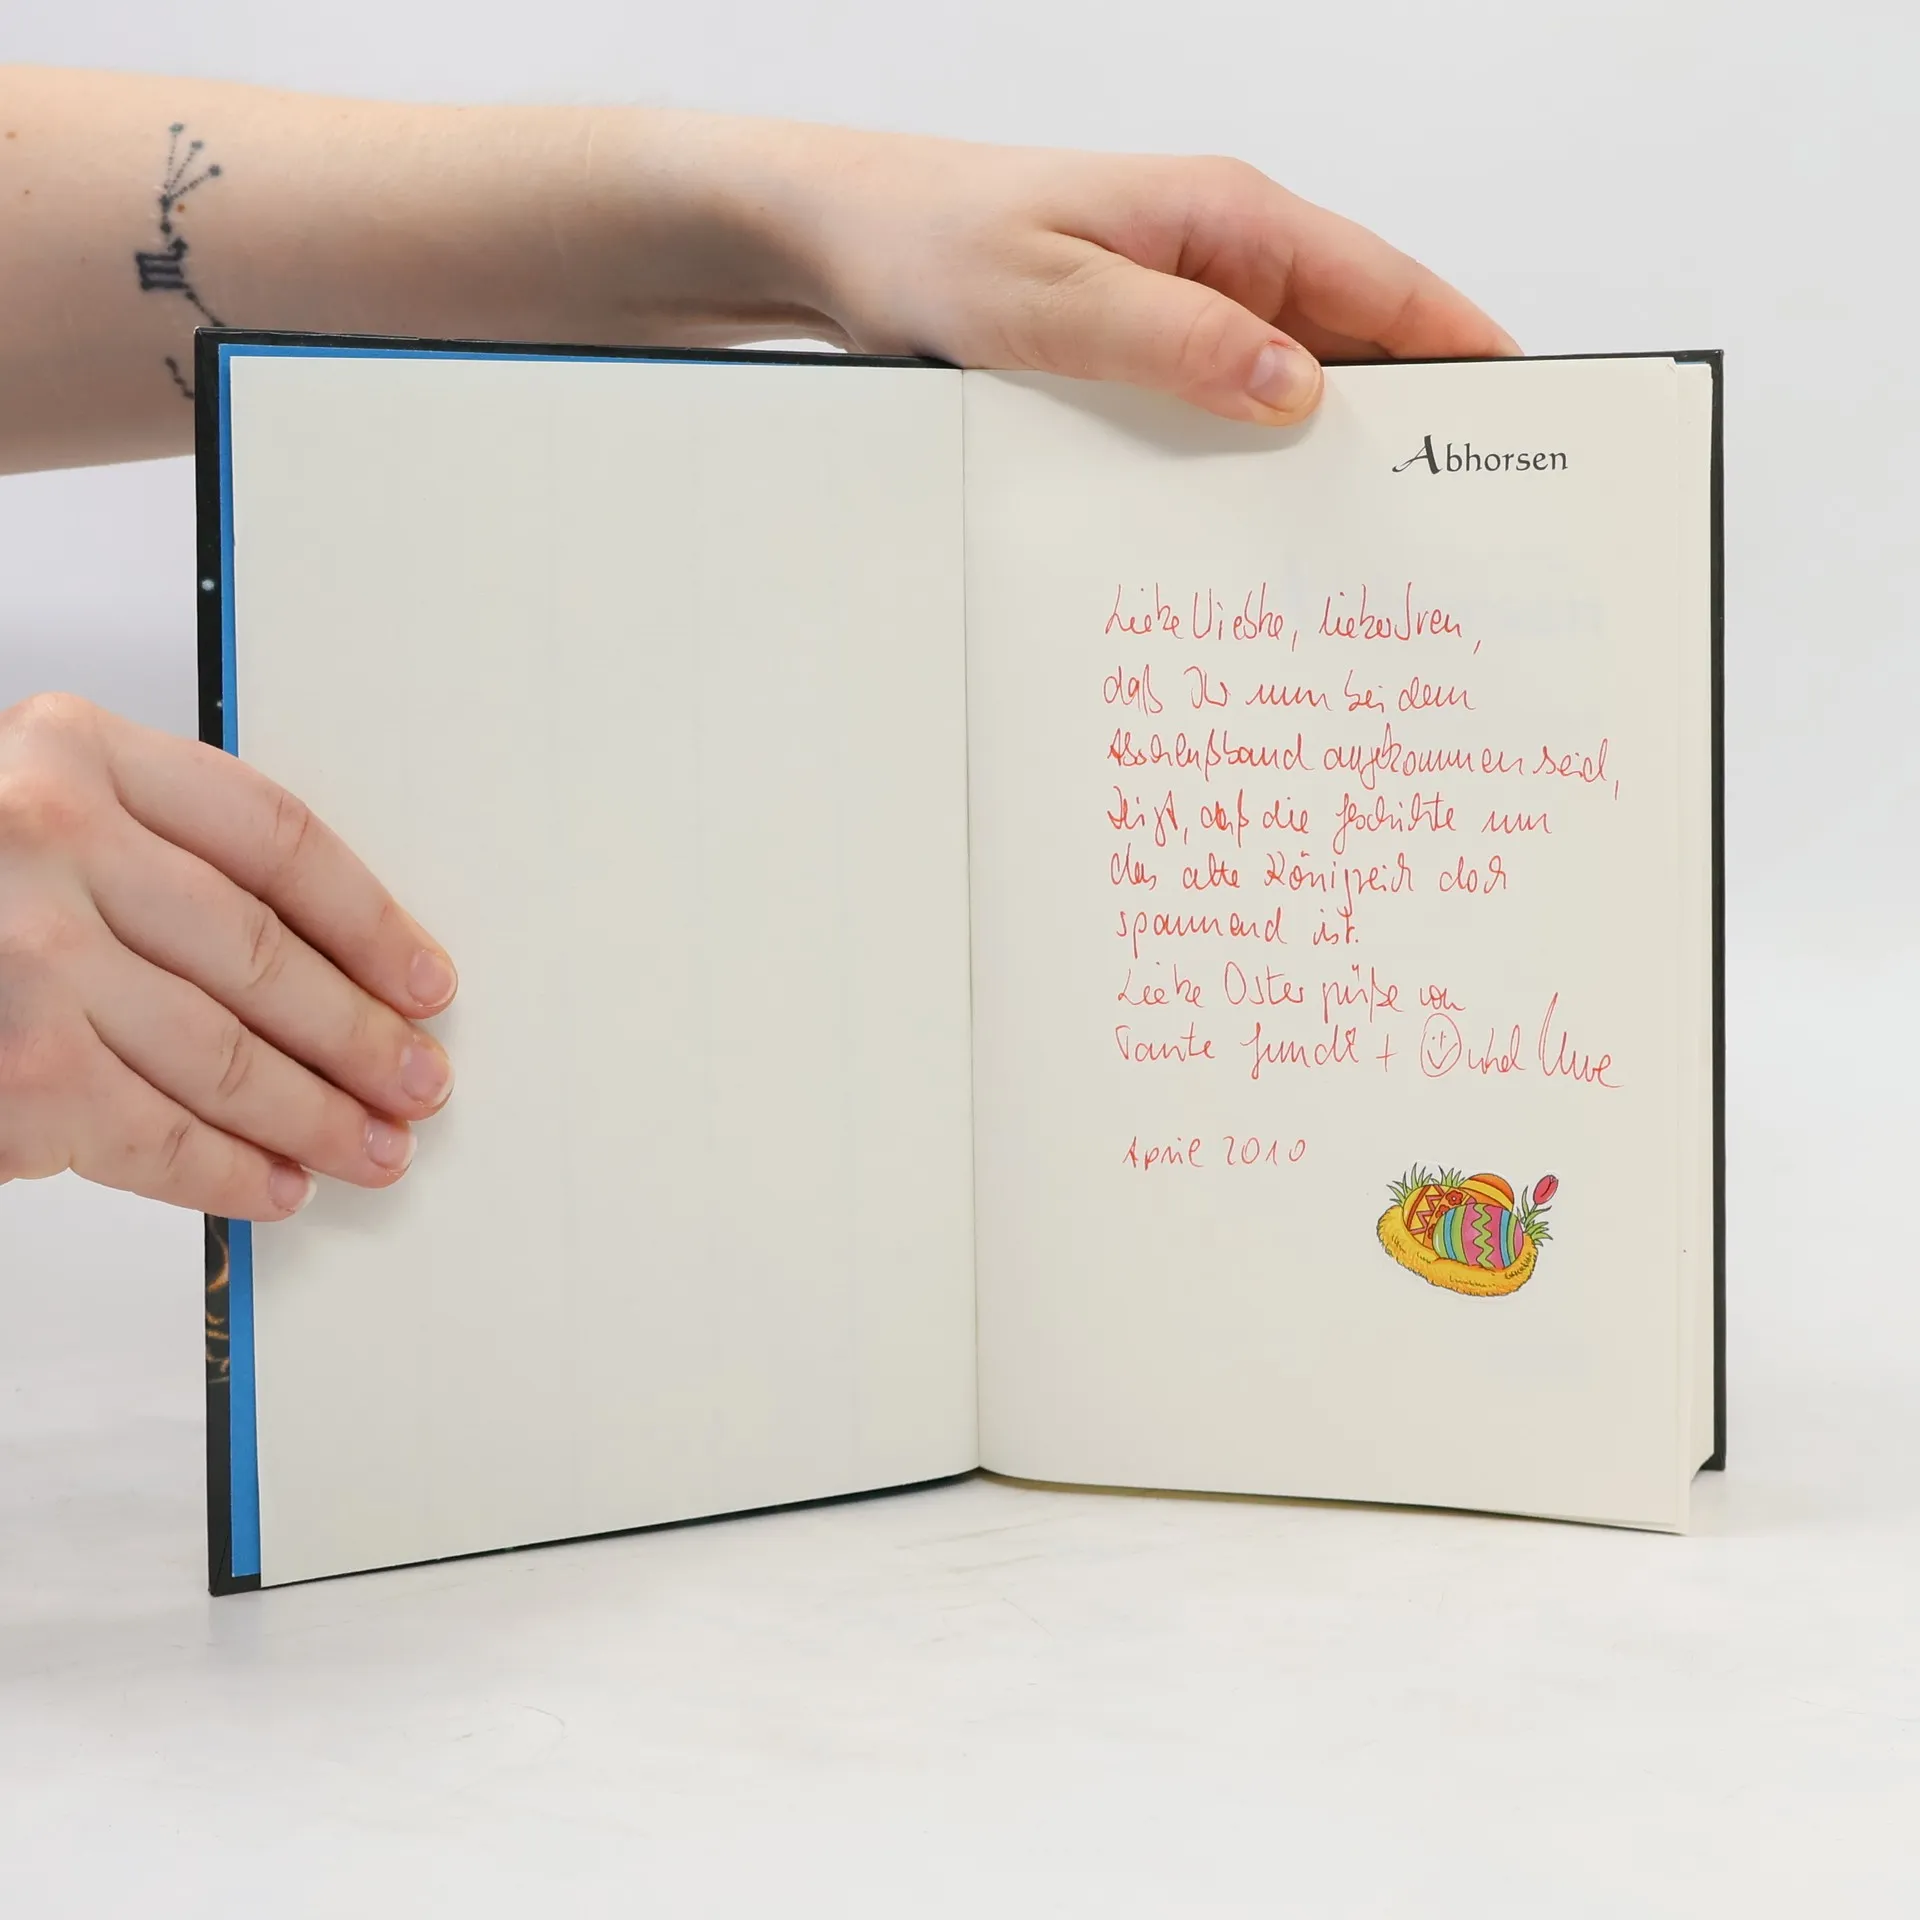 Abhorsen
Liebe Wiebke, lieber Sven,
daß Ihr nun bei dem
Abschlußband angekommen seid,
zeigt, daß die Geschichte um
das alte Königreich doch
spannend ist.
Liebe Ostergrüße von
Tante + und Uwe
April 2010